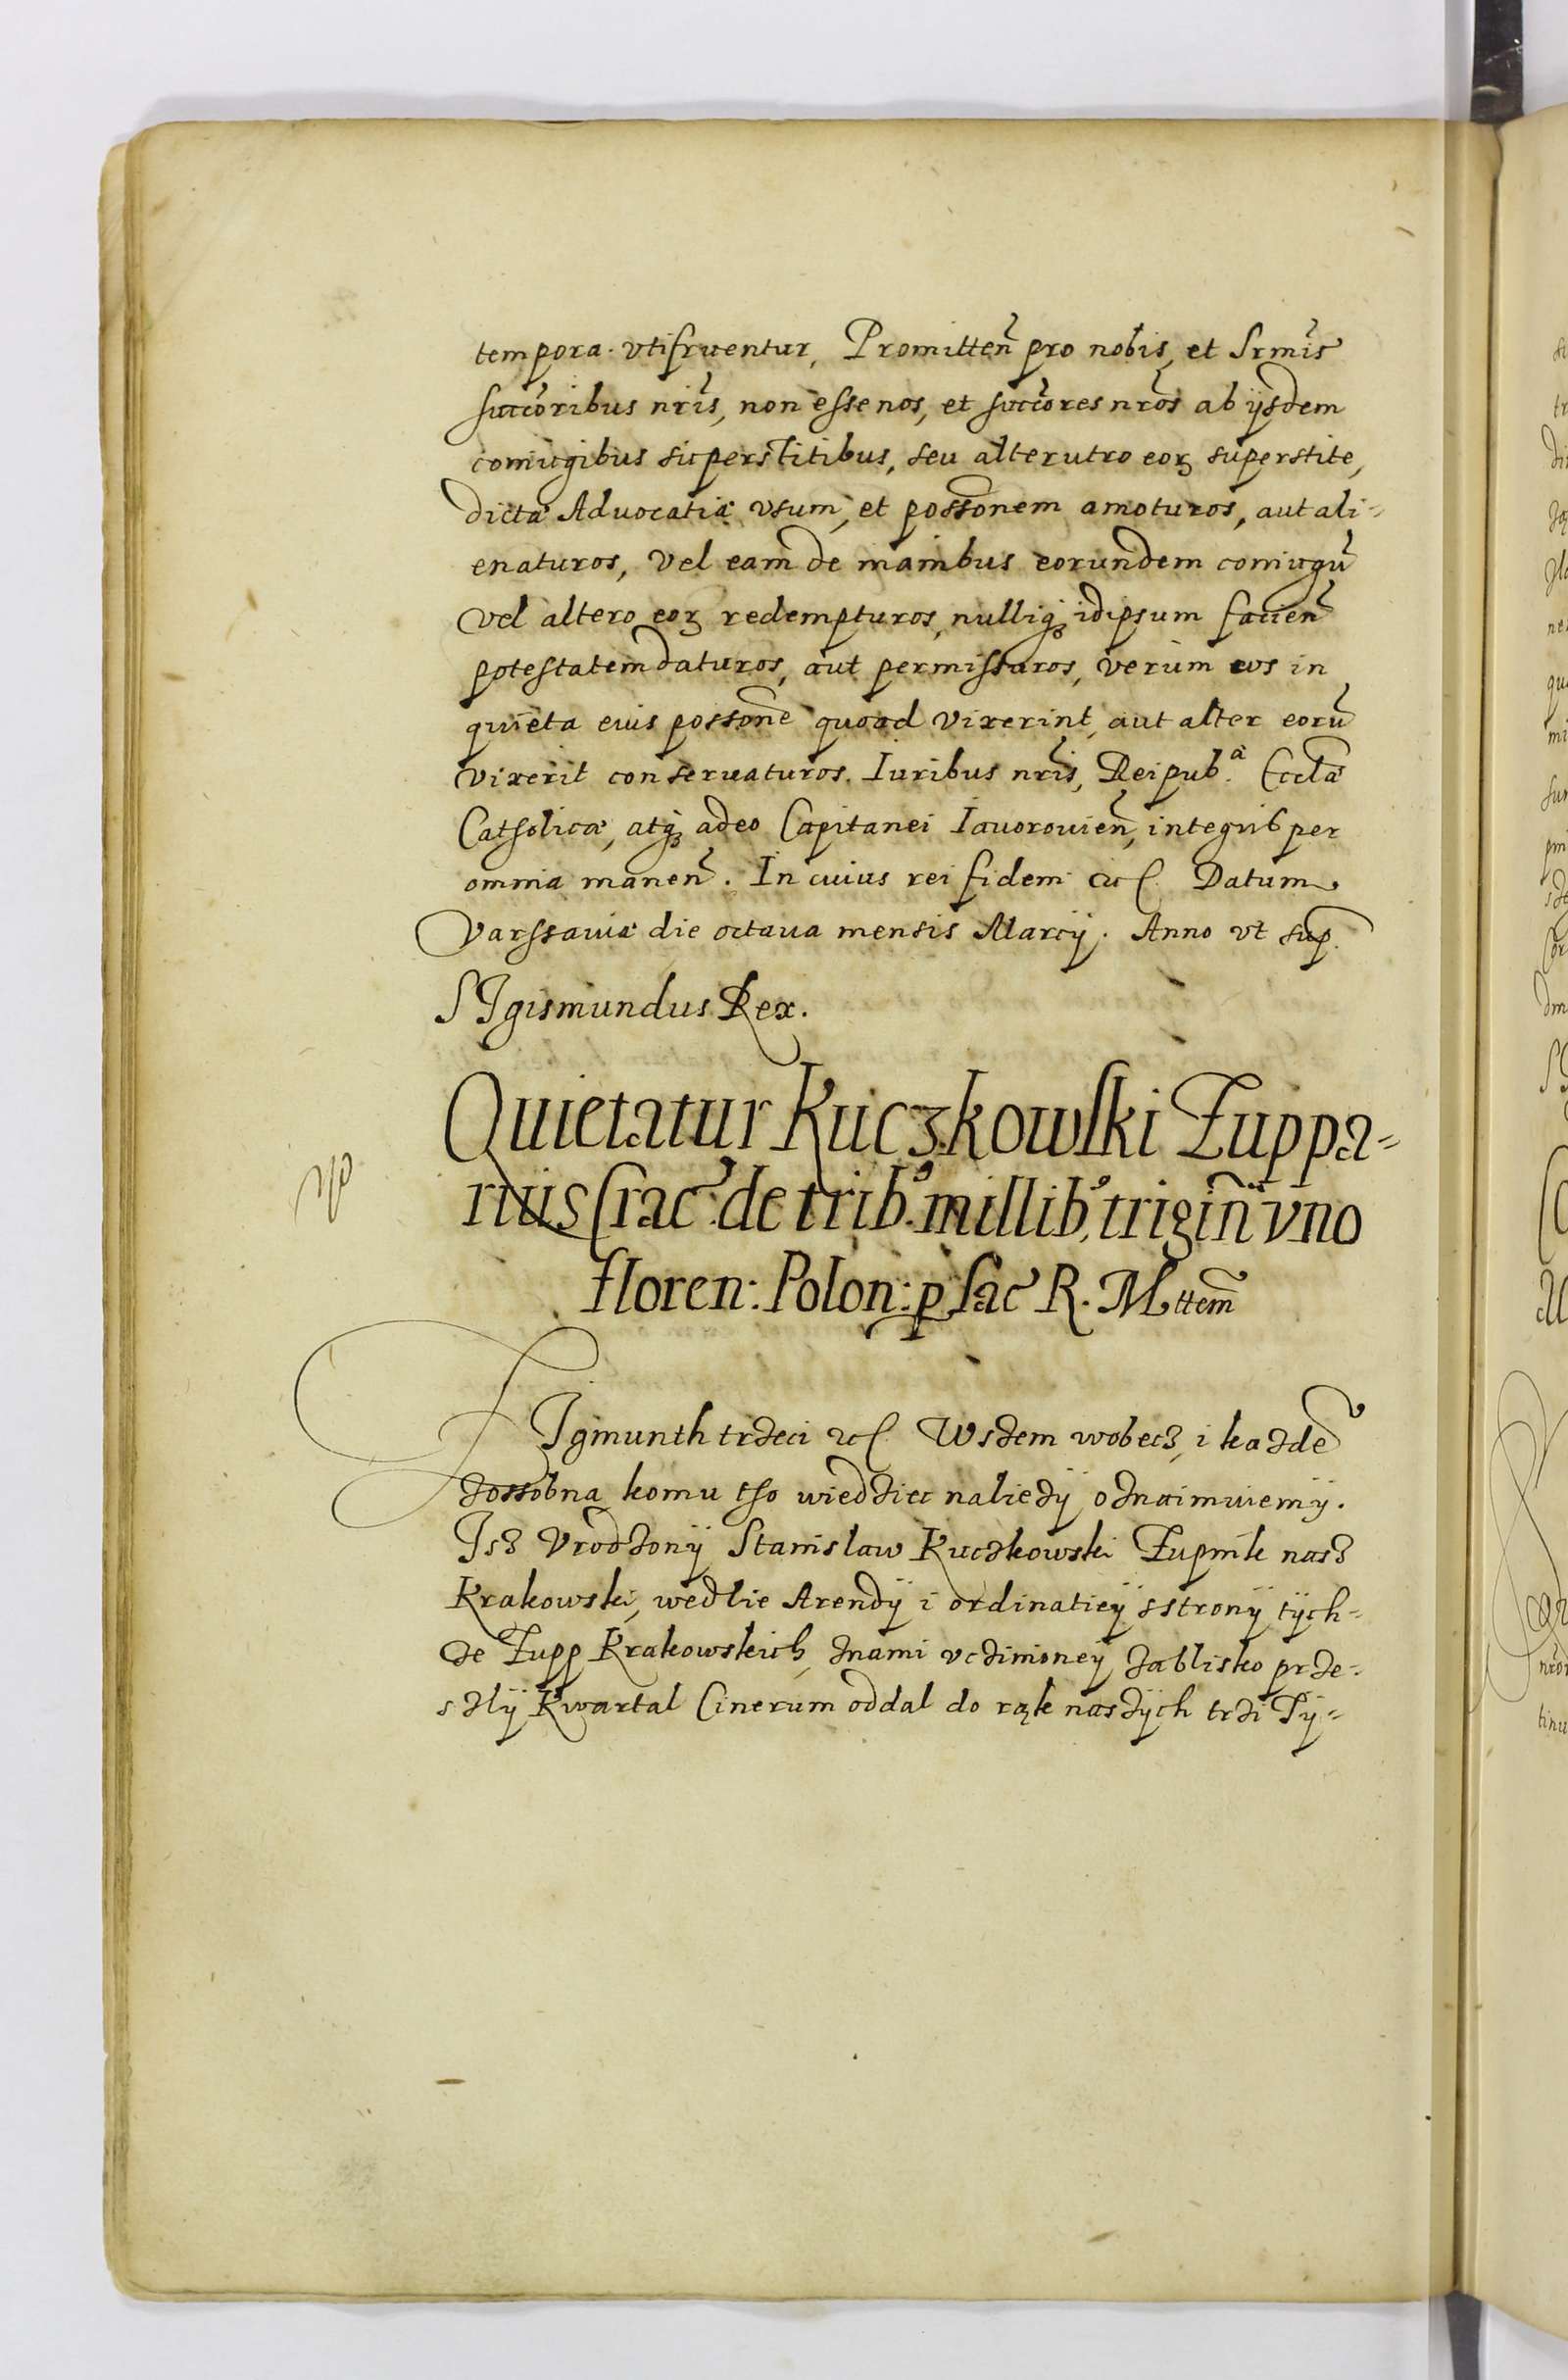 tempora vtifruentur, Promitteñ pro nobis, et Srmis
succoribus nris, non esse nos, et succores nros ab ijsdem
coniugibus superstitibus, seu alterutro eorꝫ superstite,
dictæ Advocatiæ vsum, et possonem amoturos, aut ali-
enaturos, vel eam de manibus eorundem coniugũ
vel altero eorꝫ redempturos, nulliqꝫ idipsum facieñ
potestatem daturos, aut permissuros, verum eos in
quieta eius possone quoad vixerint, aut alter eorũ
vixerit conseruaturos. Iuribus nris, Reipub.ᵃ Eccla
Catholicæ, atqꝫ adeo Capitanei Iauorouieñ, integris per
omnia maneñ. In cuius rei fidem etc. Datum
Varssauiæ die octaua mensis Marcij. Anno vt sup.
SIgismundus Rex.
Quietatur Kuczkowski Zuppa-
rius Crac. de trib9 millib9 trigiñ vno
floren: Polon: p Sac R. Mttem
ZIgmunth trzeci etc. Wszem wobecz, i kazdeᵒ
zossobna komu tho wiedziec naliezÿ oznaimuiemÿ.
Isz Vrodzonÿ Stanislaw Kuczkowski Zupnik nasz
Krakowski, wedlie Arendÿ i ordinatieÿ sstronÿ tÿch-
ze Zupp Krakowskich, znami vczinioneÿ zablisko prze-
szlÿ Kwartal Cinerum oddal do rąk naszÿch trzi Tÿ-